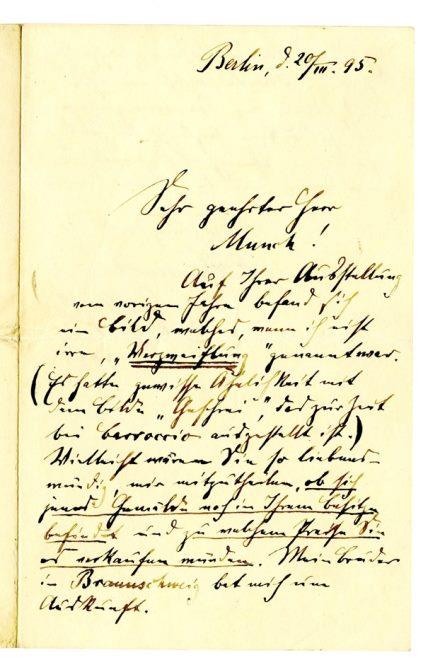 Berlin, d. 20/III. 95.
Sehr geehrter Herr
Munch!
Auf Ihrer Ausstellung
vom vorigen Jahre befand sich
ein Bild, welches, wenn ich nicht
irre, „Verzweiflung“ genannt war.
(Es hatte gewisse Ähnlichkeit mit
dem Bilde „Geschrei“, das zur Zeit
bei ausgestellt ist.)
Vielleicht wären Sie so liebens-
würdig, mir mitzutheilen, ob sich
jenes Gemälde noch in Ihrem Besitze
befindet und zu welchem Preise Sie
es verkaufen würden. Mein Bruder
in Braunschweig bat mich um
Auskunft.